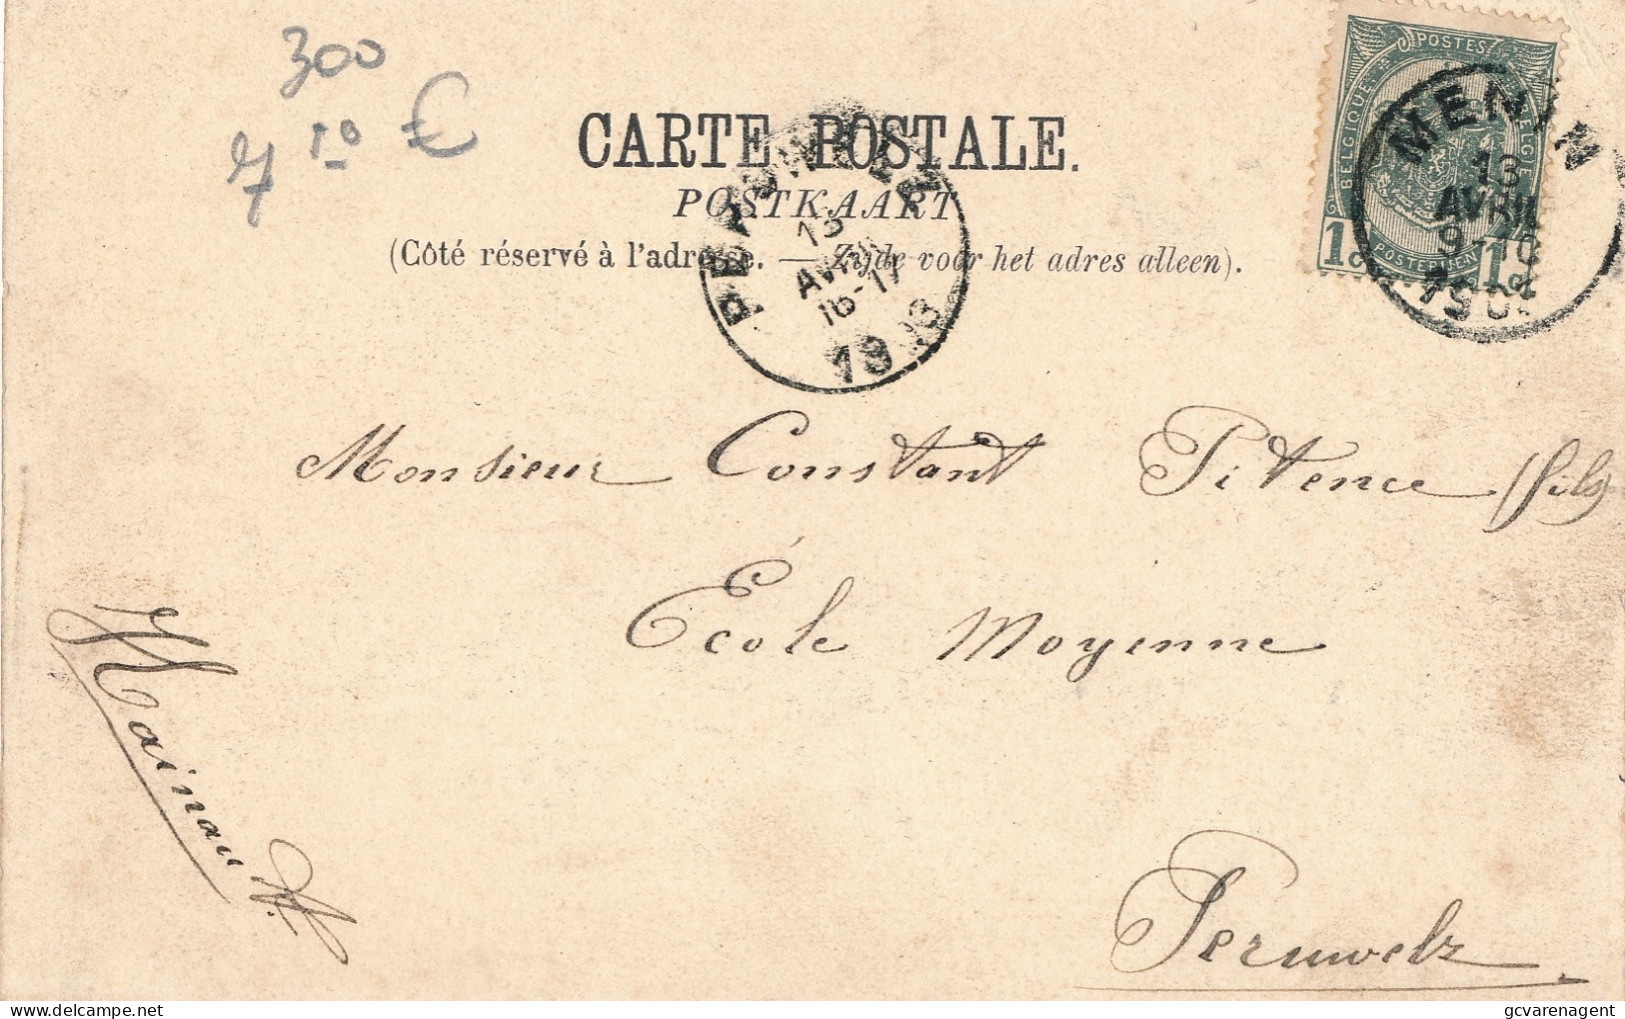 300
7 10 €
CARTE POSTALE.
POSTKAART
(Côté réservé à l'adresse. — Zijde voor het adres alleen).
POSTES
BELGIQUE
BELGIE
1c POSTERIJEN 1c
MENIN
13
AVRIL
9-10
190
13
AVRIL
16-17
1903
Monsieur Constant Pitence (fils)
École Moyenne
Hainaut
Peruwelz
gcvarenagent